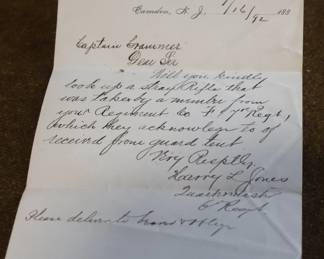 Camden, N. J. 9/16/92 188
Captain Crammer
Dear Sir
Will you kindly
look up a stray Rifle that
was taken by a member from
your Regiment Co F 7th Regt,
which they acknowledge to of
received from guard tent
Very Resptly,
Harry L Jones
Quartermaster
6 Regt
Please deliver to